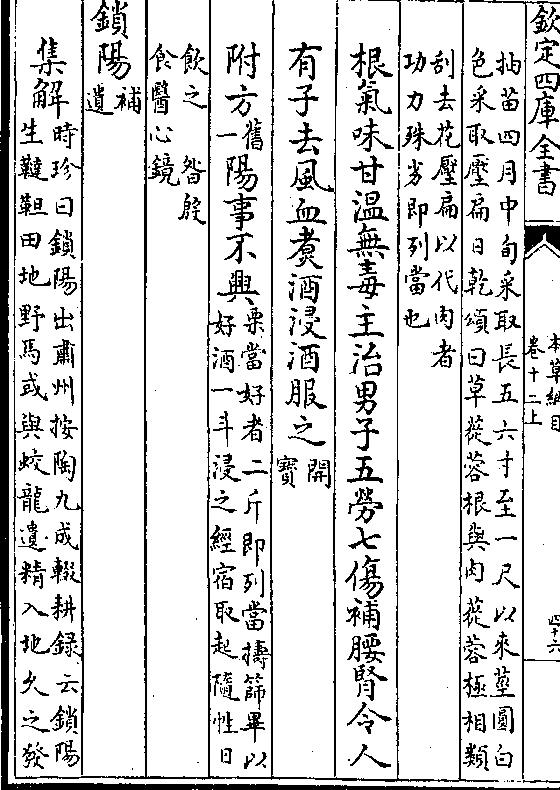 欽定四庫全書
本草綱目
卷十二上
四十六
抽苗四月中旬采取長五六寸至一尺以來莖圓白
色采取壓扁日乾頌曰草蓯蓉根與肉蓯蓉極相類
刮去花壓扁以代肉者
功力殊劣即列當也
根氣味甘温無毒主治男子五勞七傷補腰腎令人
有子去風血煮酒浸酒服之
開
寳
附方
舊
一
陽事不興
栗當好者二斤即列當擣篩畢以
好酒一斗浸之經宿取起隨性日
飲之
昝殷
食醫心鏡
鎖陽
補
遺
集解
時珍曰鎖陽出肅州按陶九成輟耕録云鎖陽
生韃靼田地野馬或與蛟龍遺精入地久之發